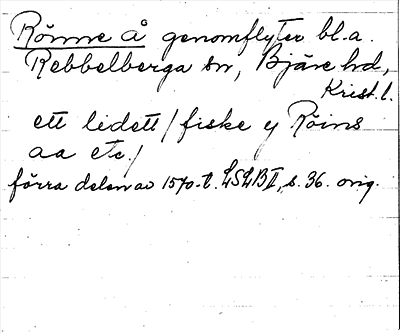 Rönne å genomflyter bl.a.
Rebbelberga sn, Bjäre hd,
Krist. l.
ett lidett / fiske y Röins
aa etc. /
förra delen av 1570-t. LSLB II, s. 36. orig.